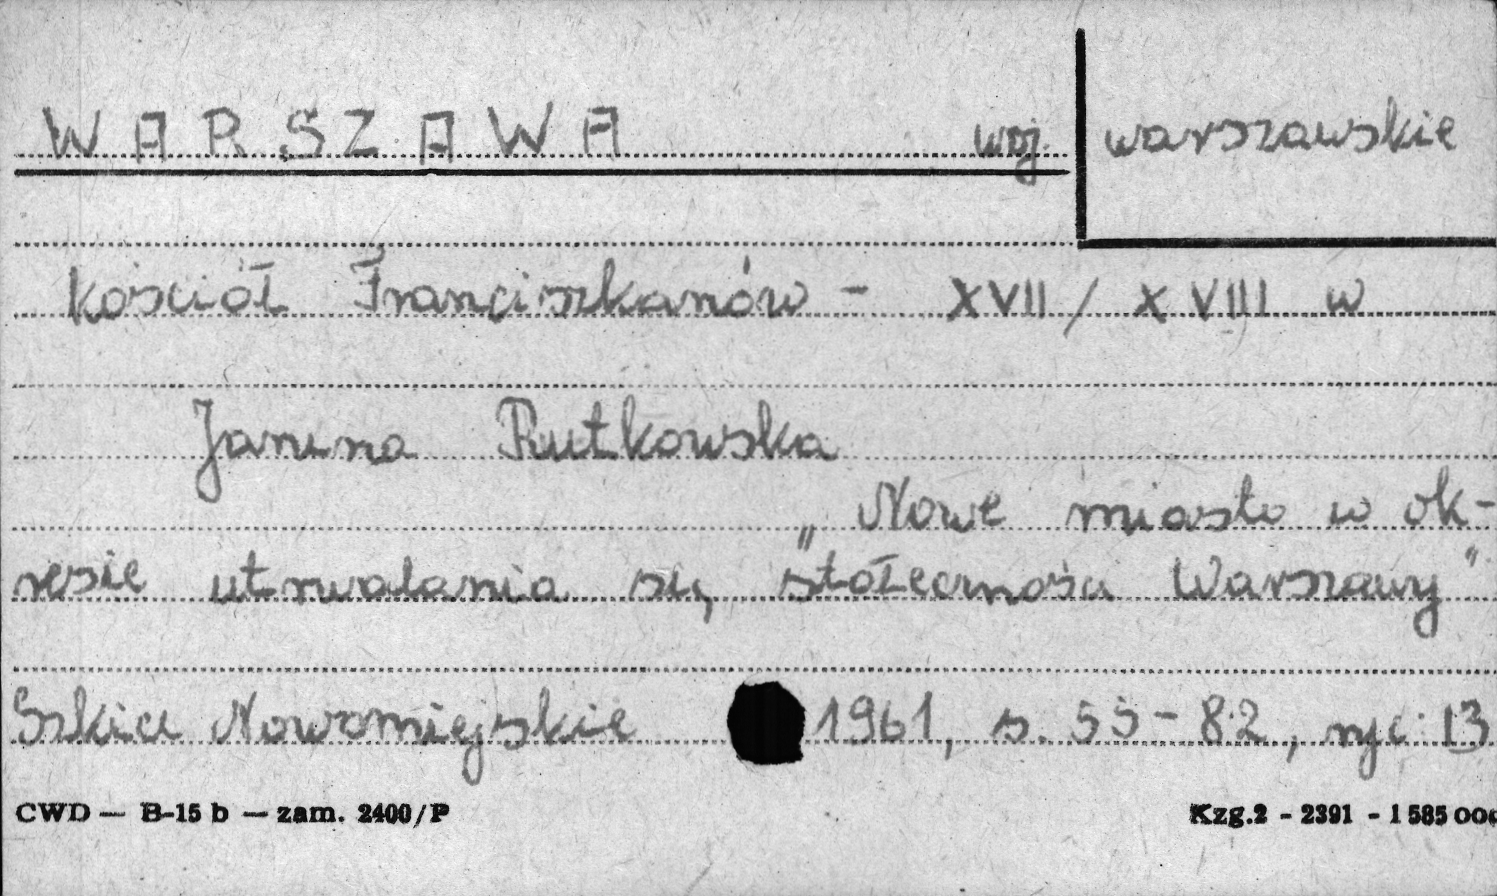 WARSZAWA woj. warszawskie
Kościół Franciszkanów - XVII / XVIII w
Janina Rutkowska
„Nowe miasto w ok-
resie utrwalania się stołeczności Warszawy"
Szkice Nowomiejskie 1961, s. 55-82, ryc 13
CWD — B-15 b — zam. 2400/P
Kzg.2 - 2391 - 1 585 000